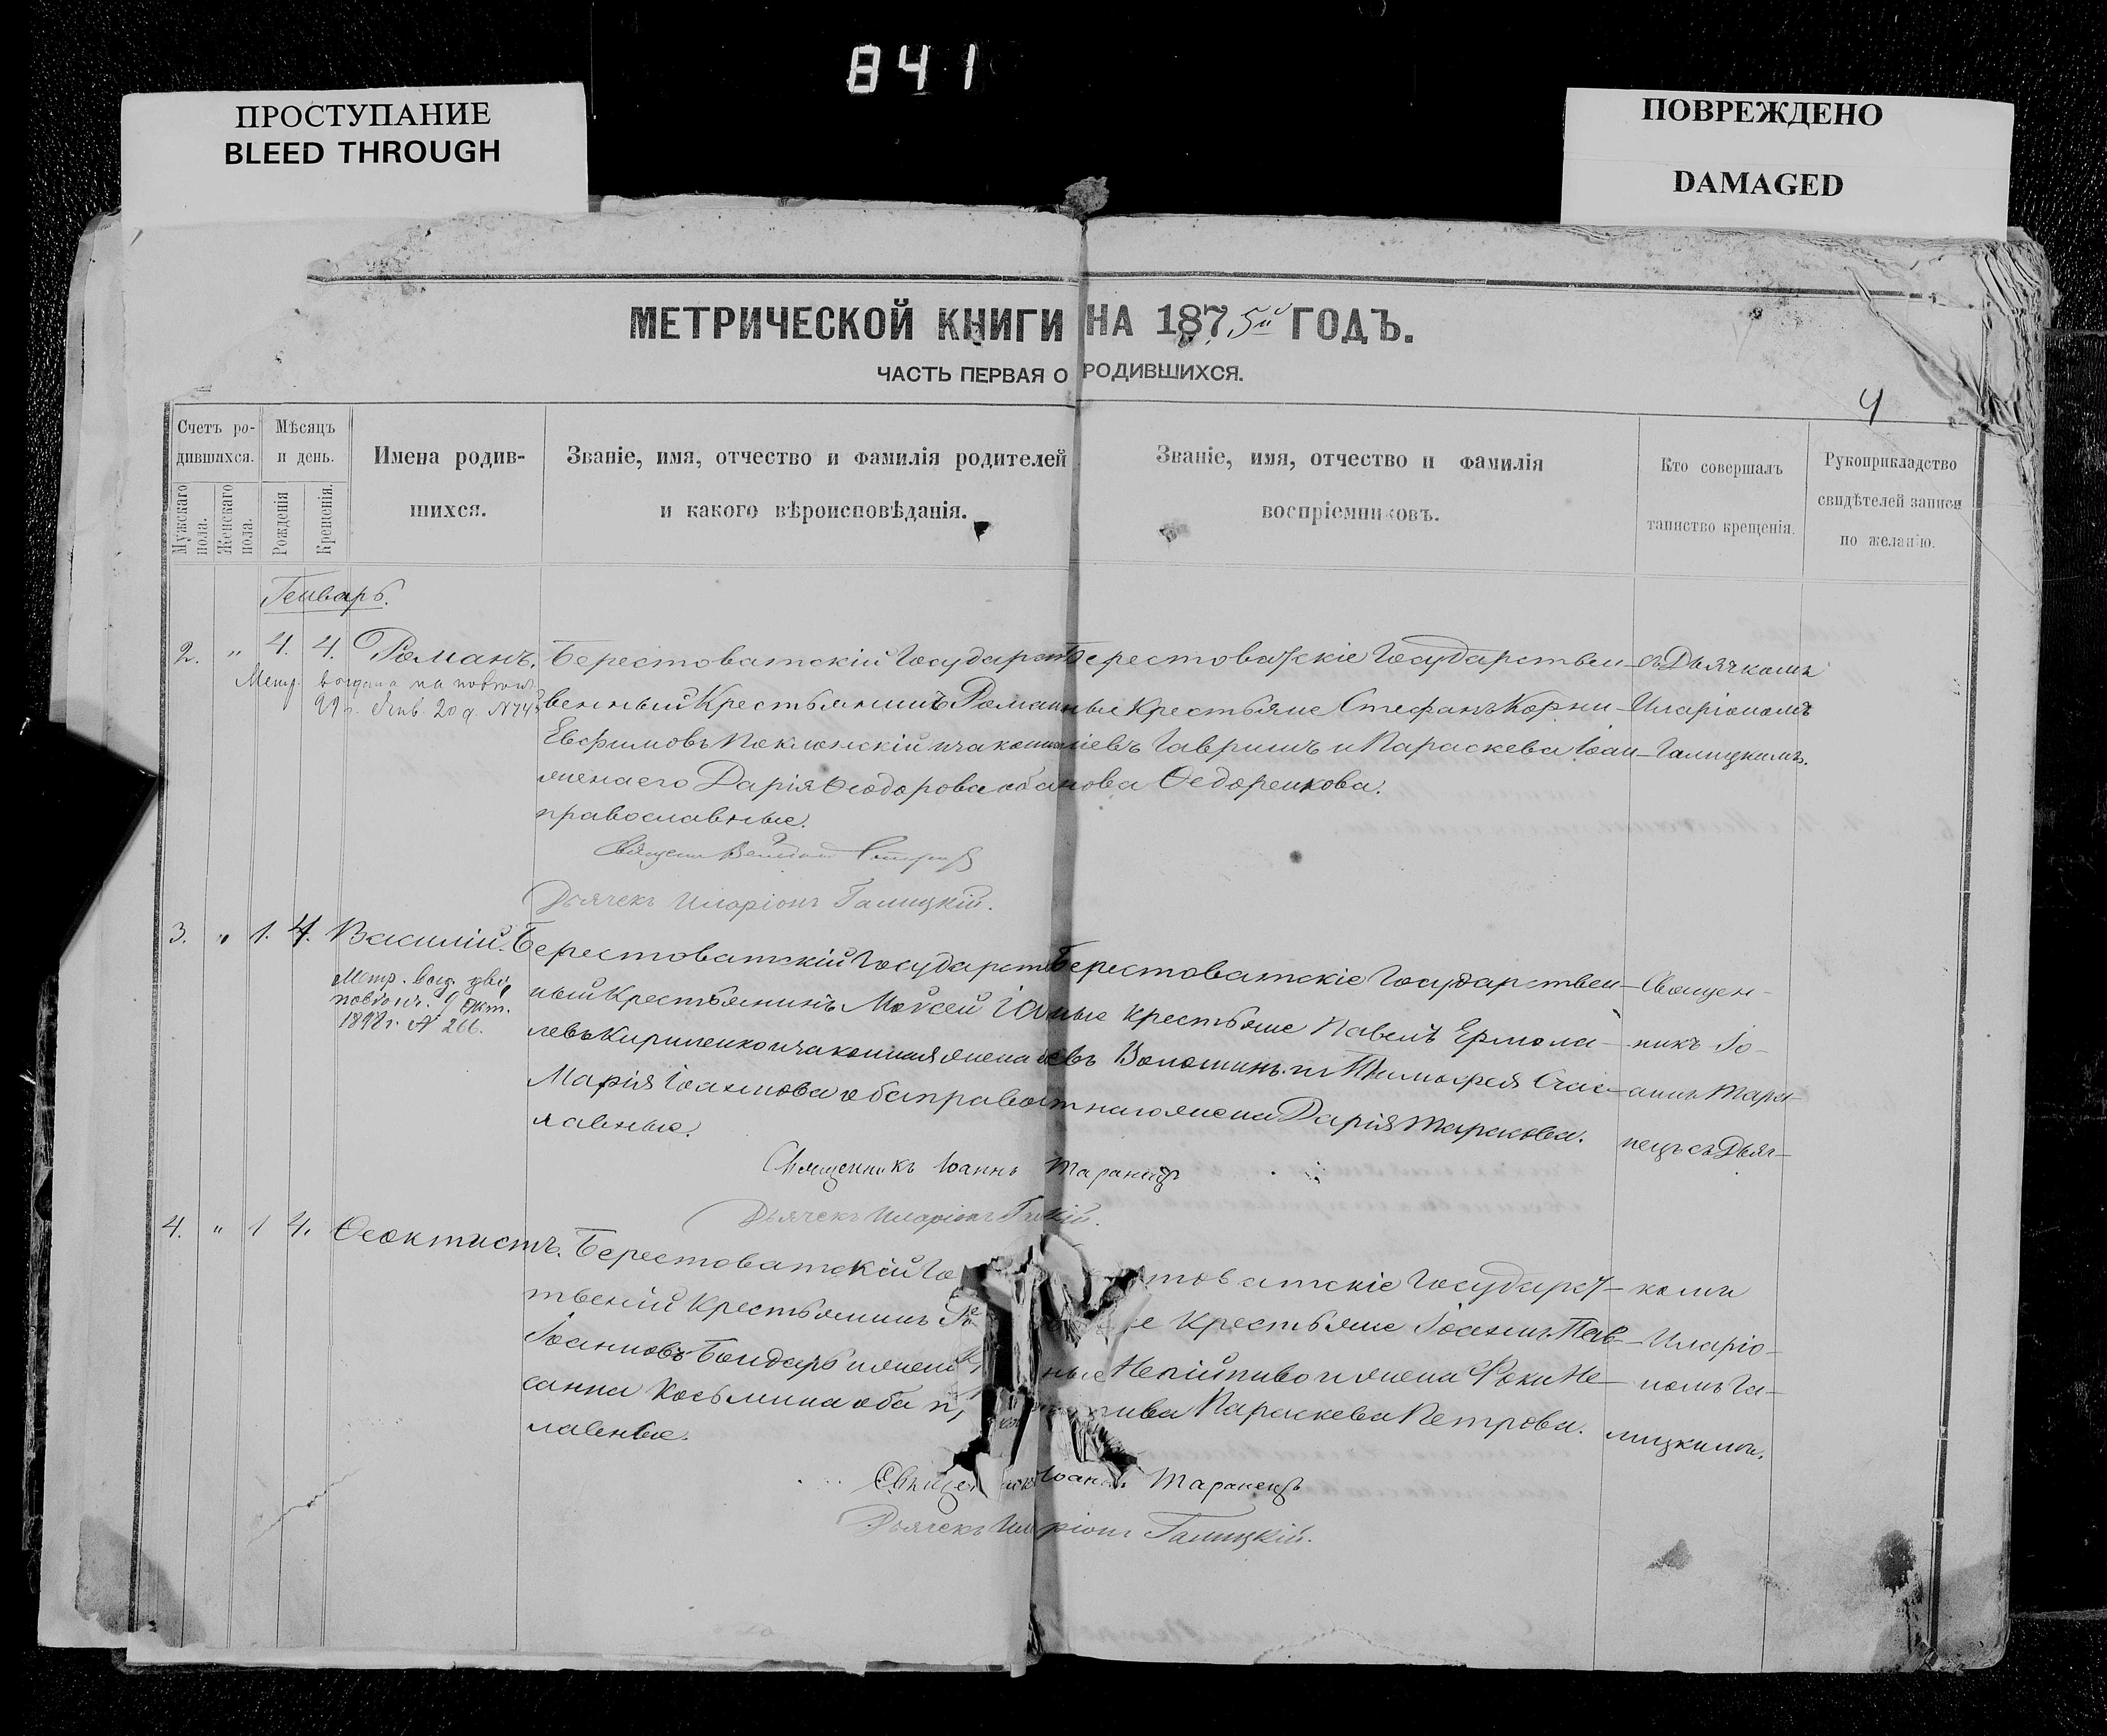 841
ПРОСТУПАНИЕ
BLEED THROUGH
ПОВРЕЖДЕНО
DAMAGED
МЕТРИЧЕСКОЙ КНИГИ НА 1875й ГОДЪ.
ЧАСТЬ ПЕРВАЯ О РОДИВШИХСЯ.
4
Счетъ ро-
дившихся.
Мужскаго пола.
Женскаго пола.
Мѣсяцъ
и день.
Рожденія
Крещенія.
Имена родив-
шихся.
Званіе, имя, отчество и фамилія родителей
и какого вѣроисповѣданія.
Званіе, имя, отчество и фамилія
воспріемниковъ.
Кто совершалъ
таинство крещенія.
Рукоприкладство
свидѣтелей записи
по желанію.
Генварь.
2. " 4. 4. Романъ.
Метр. выдана на
Янв. 20 д. №
Берестоватскій Государст
венный Крестьянинъ Роман
Евфимовъ Поклонскій и законная
жена его Дарія Ѳеодорова оба
православные.
Берестоватскіе Государствен-
ные Крестьяне Стефанъ Корни-
ліевъ Гавришъ и Параскева Іоан-
нова Ѳедоренкова.
съ Дьячкомъ
Иларіономъ
Галицкимъ.
Дьячекъ Иларіонъ Галицкій.
3. " 1. 4. Василій.
Метр. выд.
Окт.
№ 266.
Берестоватскій Государствен
ный Крестьянинъ Мойсей
левъ Кириленко и законная жена
Марія Іоаннова оба правос
лавные.
Берестоватскіе Государствен-
ные Крестьяне Павелъ Ермола-
евъ Волошинъ и Тимофея Счас-
тнаго жена Дарія Тарасова.
Священ-
никъ Іо-
аннъ Тара-
нецъ съ Дьяч-
Священникъ Іоаннъ Таранецъ
Дьячекъ Иларіонъ
4. " 1 4. Ѳеоктистъ.
Берестоватскій Го
твеній Крестьянинъ
Іоанновъ Бондарь и жена
санна Косьмина оба п
лавные.
товатскіе Государст-
е Крестьяне Іоаннъ Пав-
Непійпиво и жена Фоки Не-
пива Параскева Петрова.
комъ
Иларіо-
номъ Га-
лицкимъ.
Іоаннъ Таранецъ
Дьячекъ Иларіонъ Галицкій.